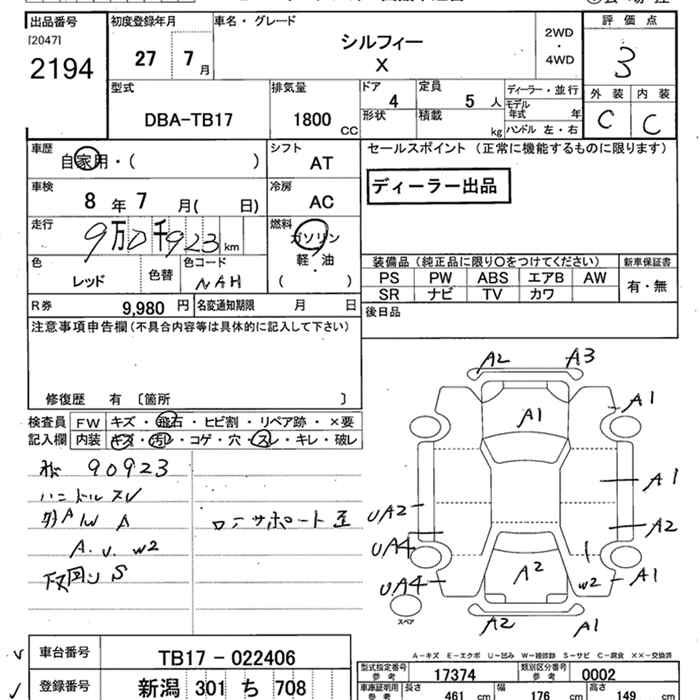 出品番号 初度登録年月 車名・グレード 2WD・4WD 評価点
[2047] 27 7月 シルフィー 3
2194 X
型式 排気量 ドア 4 定員 5人 ディーラー・並行 外装 内装
DBA-TB17 1800CC 形状 積載 kg モデル年式 年 C C
ハンドル 左・右
車歴 自家用・( ) シフト AT セールスポイント (正常に機能するものに限ります)
車検 8年 7月( 日) 冷房 AC ディーラー出品
走行 9万0千923km 燃料 ガソリン・軽油( )
色 レッド 色替 色コード NAH
装備品 (純正品に限り○をつけてください) 新車保証書
PS PW ABS エアB AW 有・無
SR ナビ TV カワ
R券 9,980円 名変通知期限 月 日 後日品
注意事項申告欄(不具合内容等は具体的に記入して下さい)
修復歴 有 〔箇所 〕
検査員記入欄 FW キズ・飛石・ヒビ割・リペア跡・×要
内装 キズ・汚レ・コゲ・穴・スレ・キレ・破レ
90923
ハンドルスレ
外AW A
A.U.W2
下廻りS
ロアサポート歪
A2 A3
A1 A1
A1
UA2 A2
UA4
UA4 A2 W2 A1
スペア
A2 A1
A-キズ E-エクボ U-凹み W-補修跡 S-サビ C-腐食 ××-交換済
車台番号 TB17-022406
型式指定番号 参考 17374 類別区分番号 参考 0002
登録番号 新潟 301 ち 708
車庫証明用 参考 長さ 461cm 幅 176cm 高さ 149cm